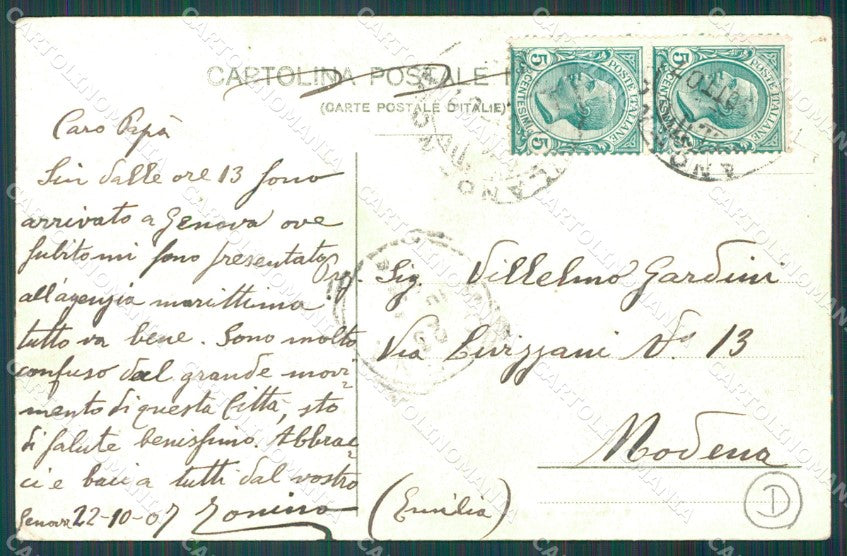 CARTOLINA POSTALE
(CARTE POSTALE D'ITALIE)
5 CENTESIMI 5
POSTE ITALIANE
5 CENTESIMI
POSTE ITALIANE
Caro Papà
Sin dalle ore 13 sono
arrivato a Genova ove
subito mi sono presentato
all'agenzia marittima
tutto va bene. Sono molto
confuso dal grande movi-
mento di questa Città, sto
di salute benissimo. Abbrac-
ci e baci a tutti dal vostro
Genova 22-10-07 Tonino
Sig. Villelmo Gardini
Via N° 13
Modena
(Emilia)
D
CARTOLINOMANIA